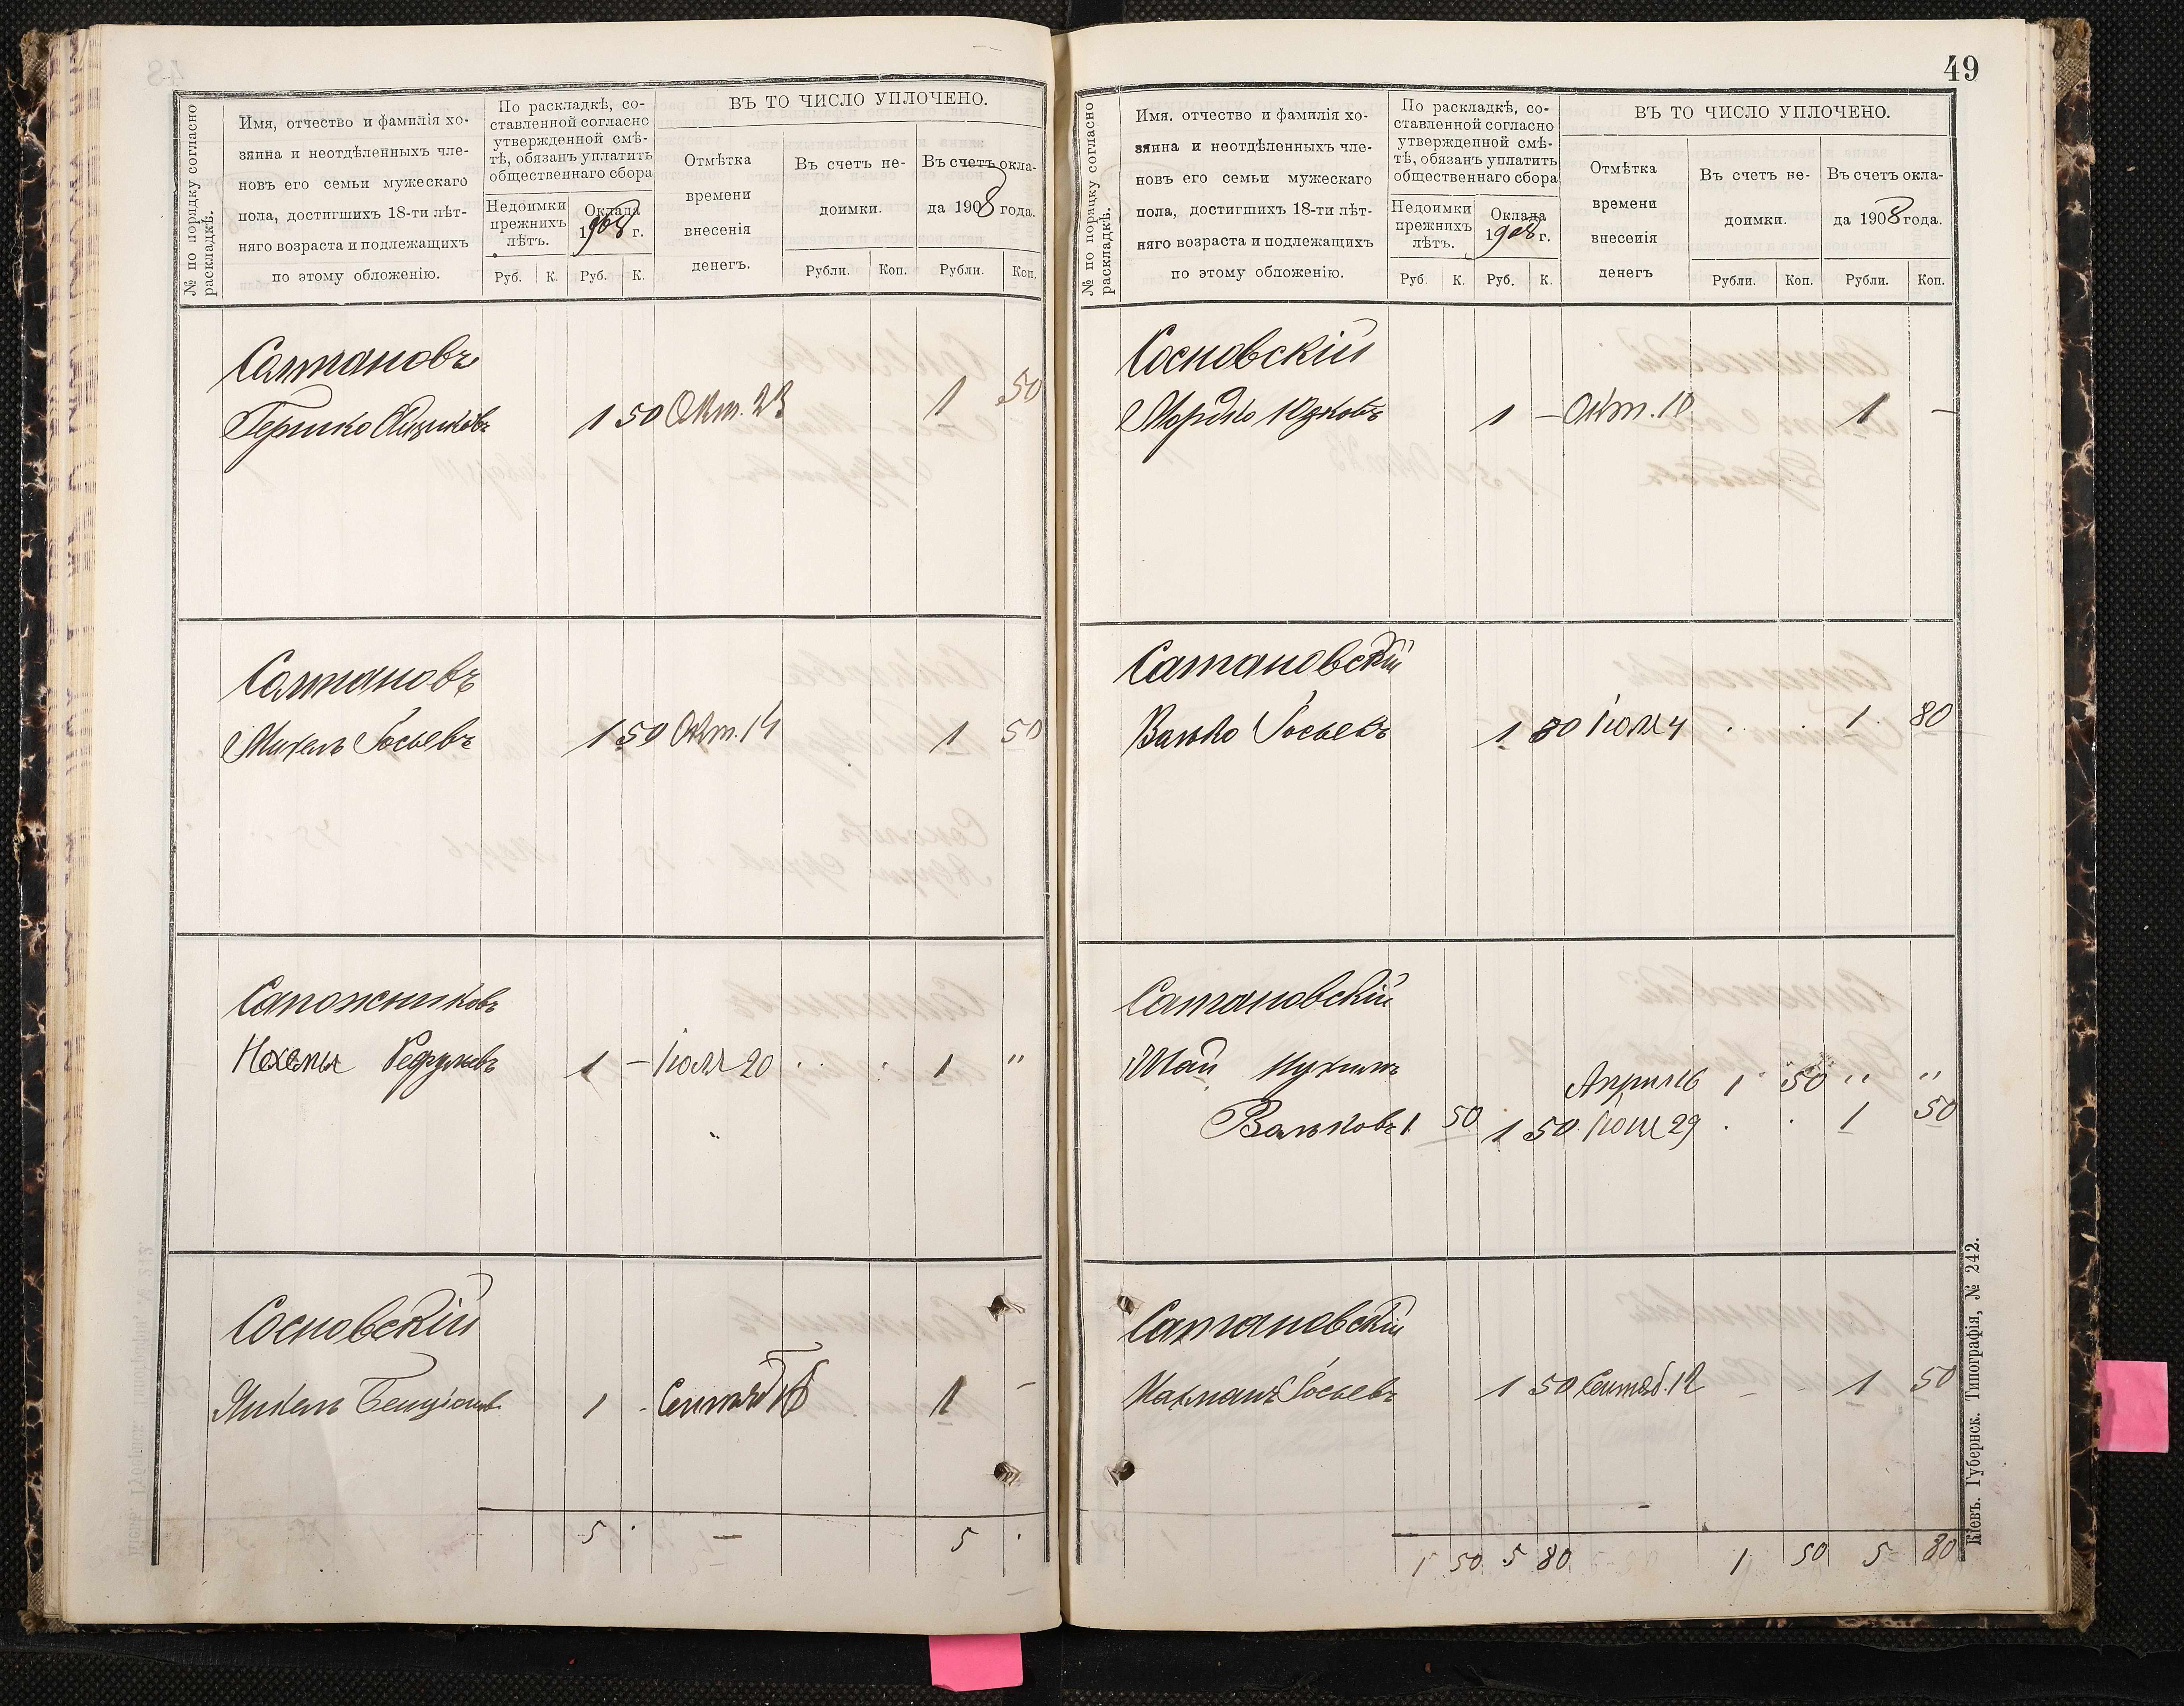 № по порядку согласно раскладкѣ.
Имя, отчество и фамилія хо-
зяина и неотдѣленныхъ чле-
новъ его семьи мужескаго
пола, достигшихъ 18-ти лѣт-
няго возраста и подлежащихъ
по этому обложенію.
По раскладкѣ, со-
ставленной согласно
утвержденной смѣ-
тѣ, обязанъ уплатить
общественнаго сбора
Недоимки
прежнихъ
лѣтъ.
Оклада
1908 г.
Руб. К. Руб. К.
ВЪ ТО ЧИСЛО УПЛОЧЕНО.
Отмѣтка
времени
внесенія
денегъ.
Въ счетъ не-
доимки.
Въ счетъ окла-
да 1908 года.
Рубли. Коп. Рубли. Коп.
Солтановъ
Гершко 1 50 Окт. 23 1 50
Солтановъ
Михель Іосьевъ 1 50 Окт. 14 1 50
Сапожниковъ
1 - Іюля 20 1 "
Сосновскій
Янкель Бенціоновъ 1 - 1 -
5 . — 5 .
49
№ по порядку согласно раскладкѣ.
Имя. отчество и фамилія хо-
зяина и неотдѣленныхъ чле-
новъ его семьи мужескаго
пола, достигшихъ 18-ти лѣт-
няго возраста и подлежащихъ
по этому обложенію.
По раскладкѣ, со-
ставленной согласно
утвержденной смѣ-
тѣ, обязанъ уплатить
общественнаго сбора
Недоимки
прежнихъ
лѣтъ.
Оклада
1908 г.
Руб. К. Руб. К.
ВЪ ТО ЧИСЛО УПЛОЧЕНО.
Отмѣтка
времени
внесенія
денегъ
Въ счетъ не-
доимки.
Въ счетъ окла-
да 1908 года.
Рубли. Коп. Рубли. Коп.
Сосновскій
Мордко Юдковъ 1 — Окт. 1 —
Сатановскій
Волько Іосьевъ 1 80 Іюля 4 1 80
Сатановскій
Шай Нухимъ Април 16 1 50 " "
Вольковъ 1 50 1 50 Іюля 29 1 50
Сатановскій
Нахманъ Іосьевъ 1 50 Сентяб. 12 1 50
1 50 5 80 1 50 5 80
Кіевъ. Губернск. Типографія, № 242.